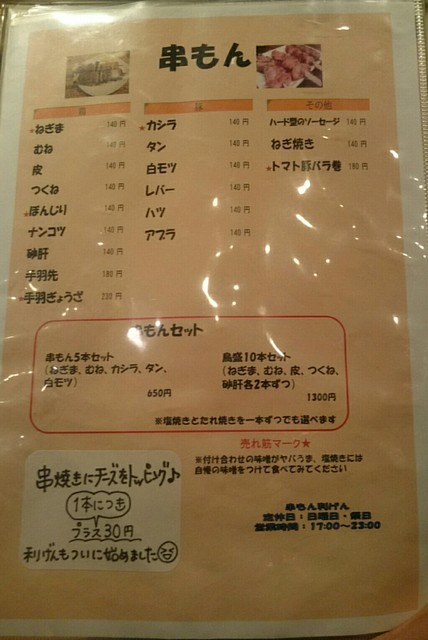 串もん
鳥 豚 その他
★ねぎま 140円
むね 140円
皮 140円
つくね 140円
★ぼんじり 140円
ナンコツ 140円
砂肝 140円
手羽先 180円
★手羽ぎょうざ 230円
★カシラ 140円
タン 140円
白モツ 140円
レバー 140円
ハツ 140円
アブラ 140円
ハード型のソーセージ 140円
ねぎ焼き 140円
★トマト豚バラ巻 180円
串もんセット
串もん5本セット
(ねぎま、むね、カシラ、タン、
白モツ)
650円
鳥盛10本セット
(ねぎま、むね、皮、つくね、
砂肝各2本ずつ)
1300円
※塩焼きとたれ焼きを一本ずつでも選べます
売れ筋マーク★
※付け合わせの味噌がヤバうま、塩焼きには
自慢の味噌をつけて食べてみてください
串焼きにチーズをトッピング♪
1本につき
プラス30円
利げんもついに始めました
串もん利げん
定休日：日曜日・祭日
営業時間：17:00～23:00